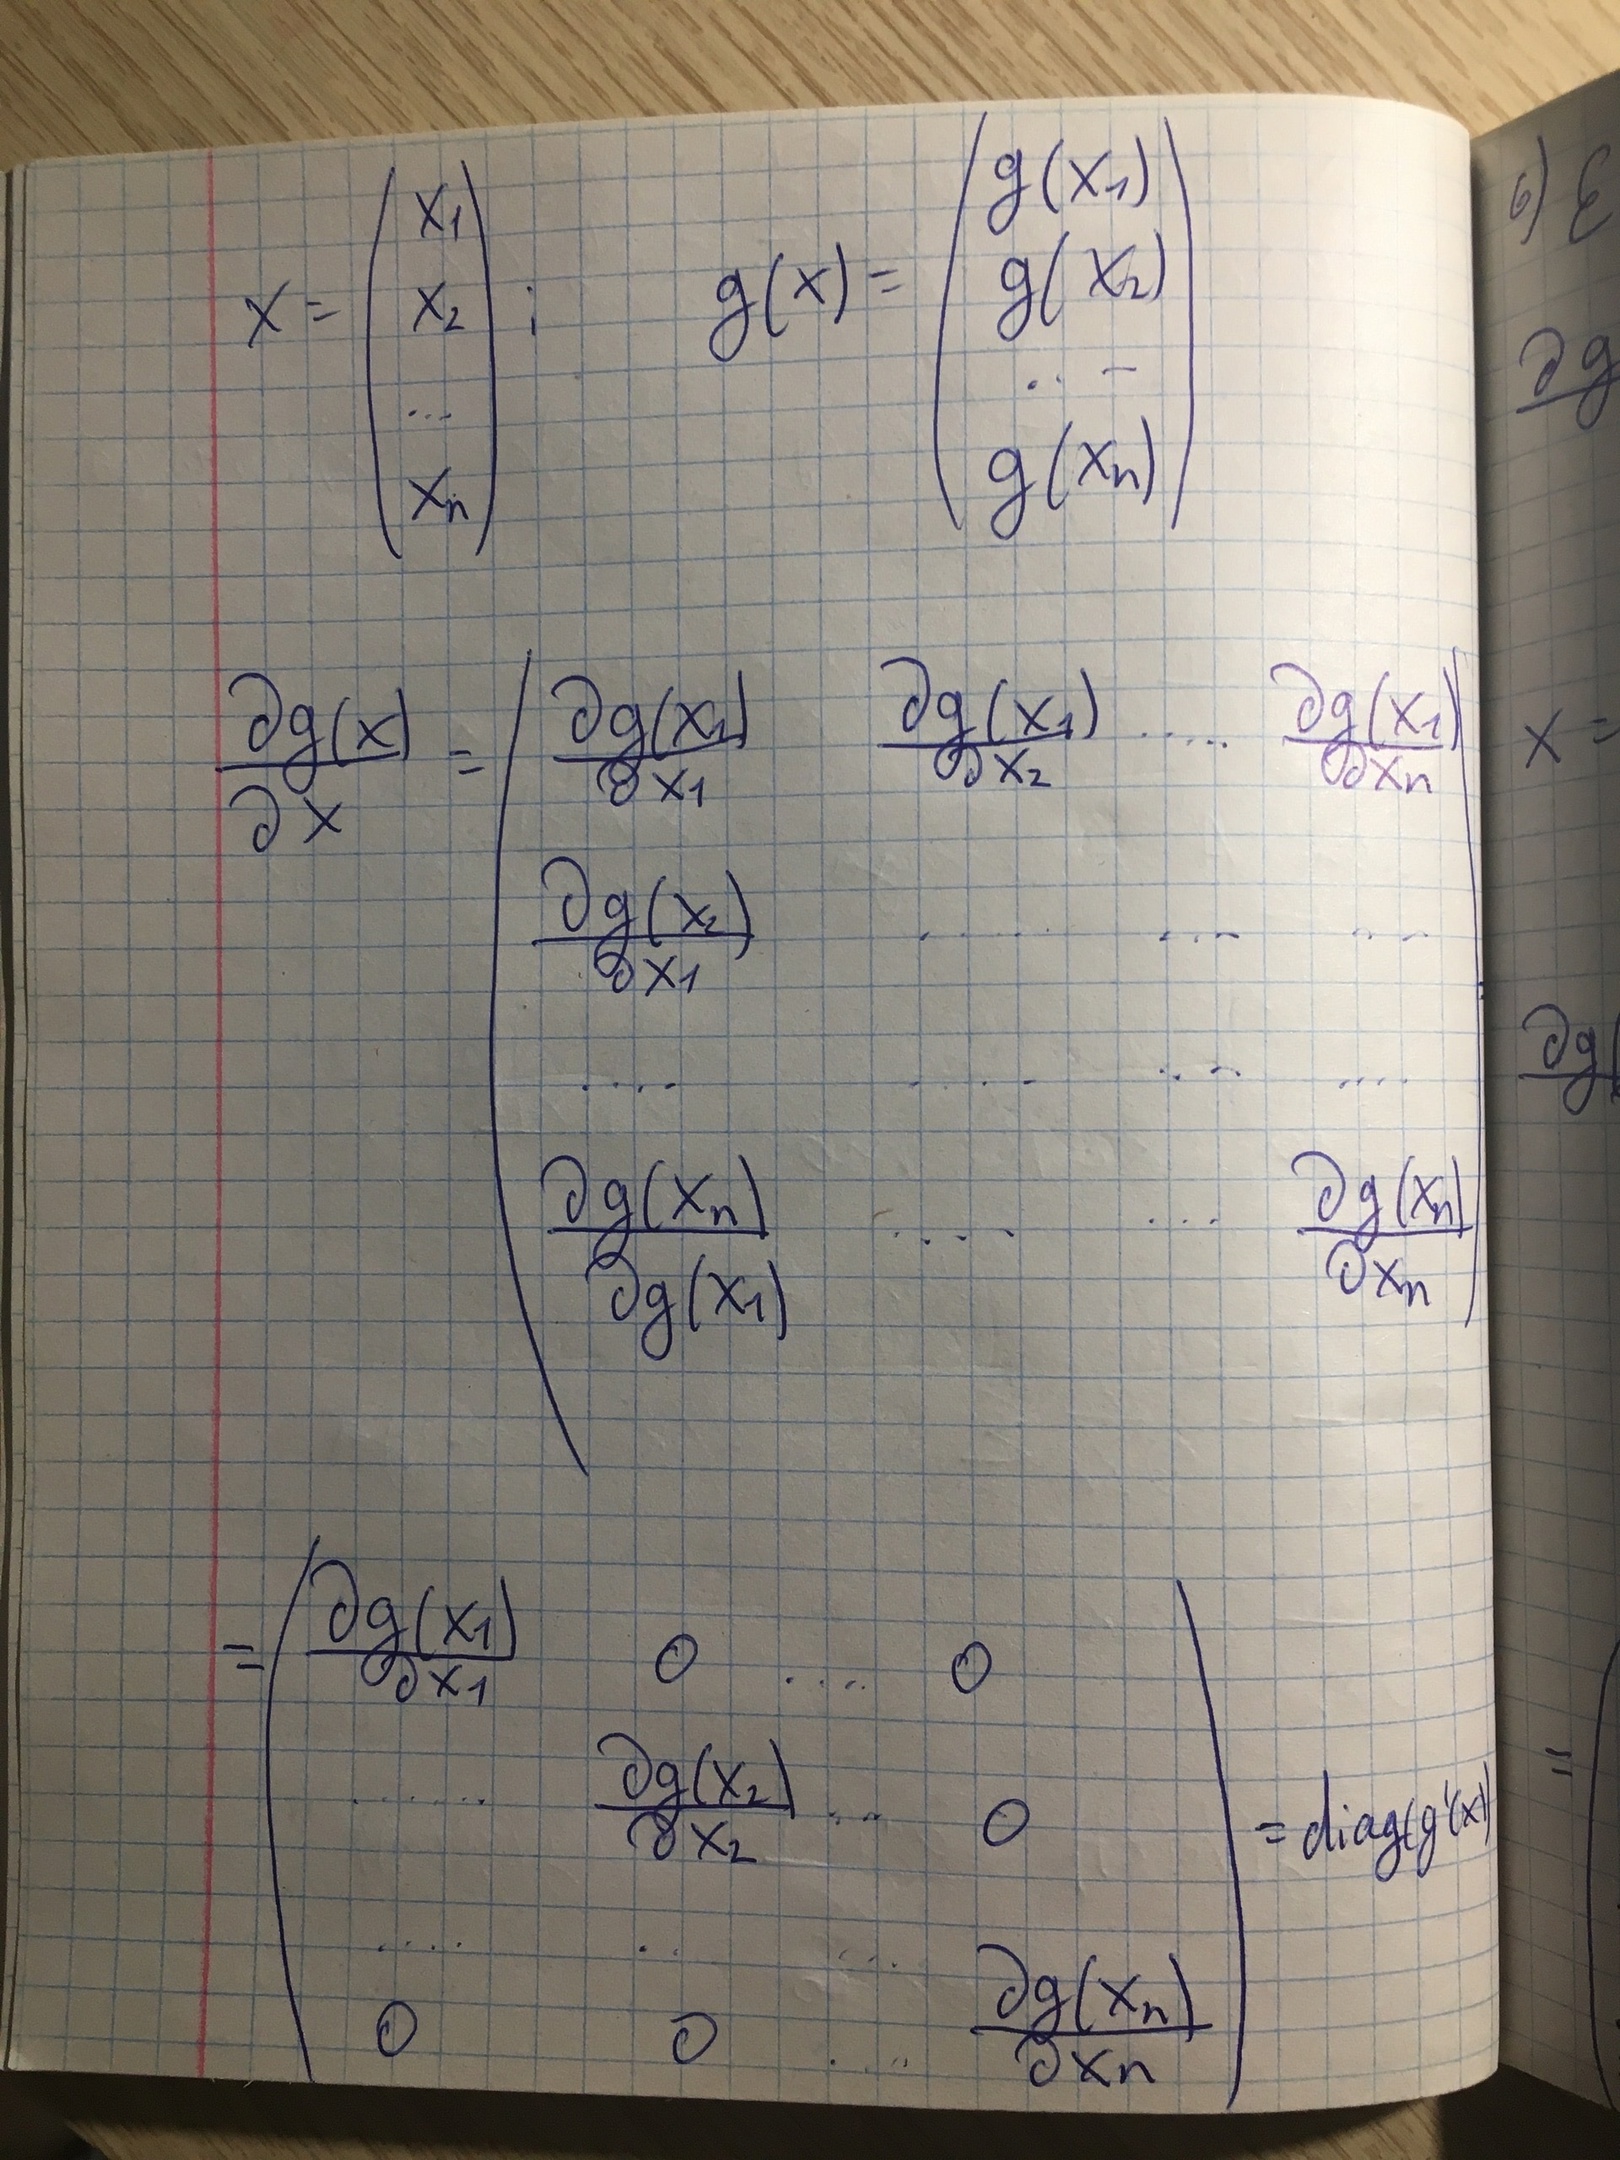 x = ( x₁ x₂ ... xₙ ) ; g(x) = ( g(x₁) g(x₂) .... g(xₙ) )
∂g(x)/∂x = ( ∂g(x₁)/∂x₁ ∂g(x₁)/∂x₂ ..... ∂g(x₁)/∂xₙ
∂g(x₂)/∂x₁ ..... .... ....
.... ..... .... ....
∂g(xₙ)/∂g(x₁) ..... ... ∂g(xₙ)/∂xₙ )
= ( ∂g(x₁)/∂x₁ 0 .... 0
...... ∂g(x₂)/∂x₂ .... 0
.... .. ....
0 0 .... ∂g(xₙ)/∂xₙ ) = diag(g'(x))
б)
∂g
x =
∂g(
=